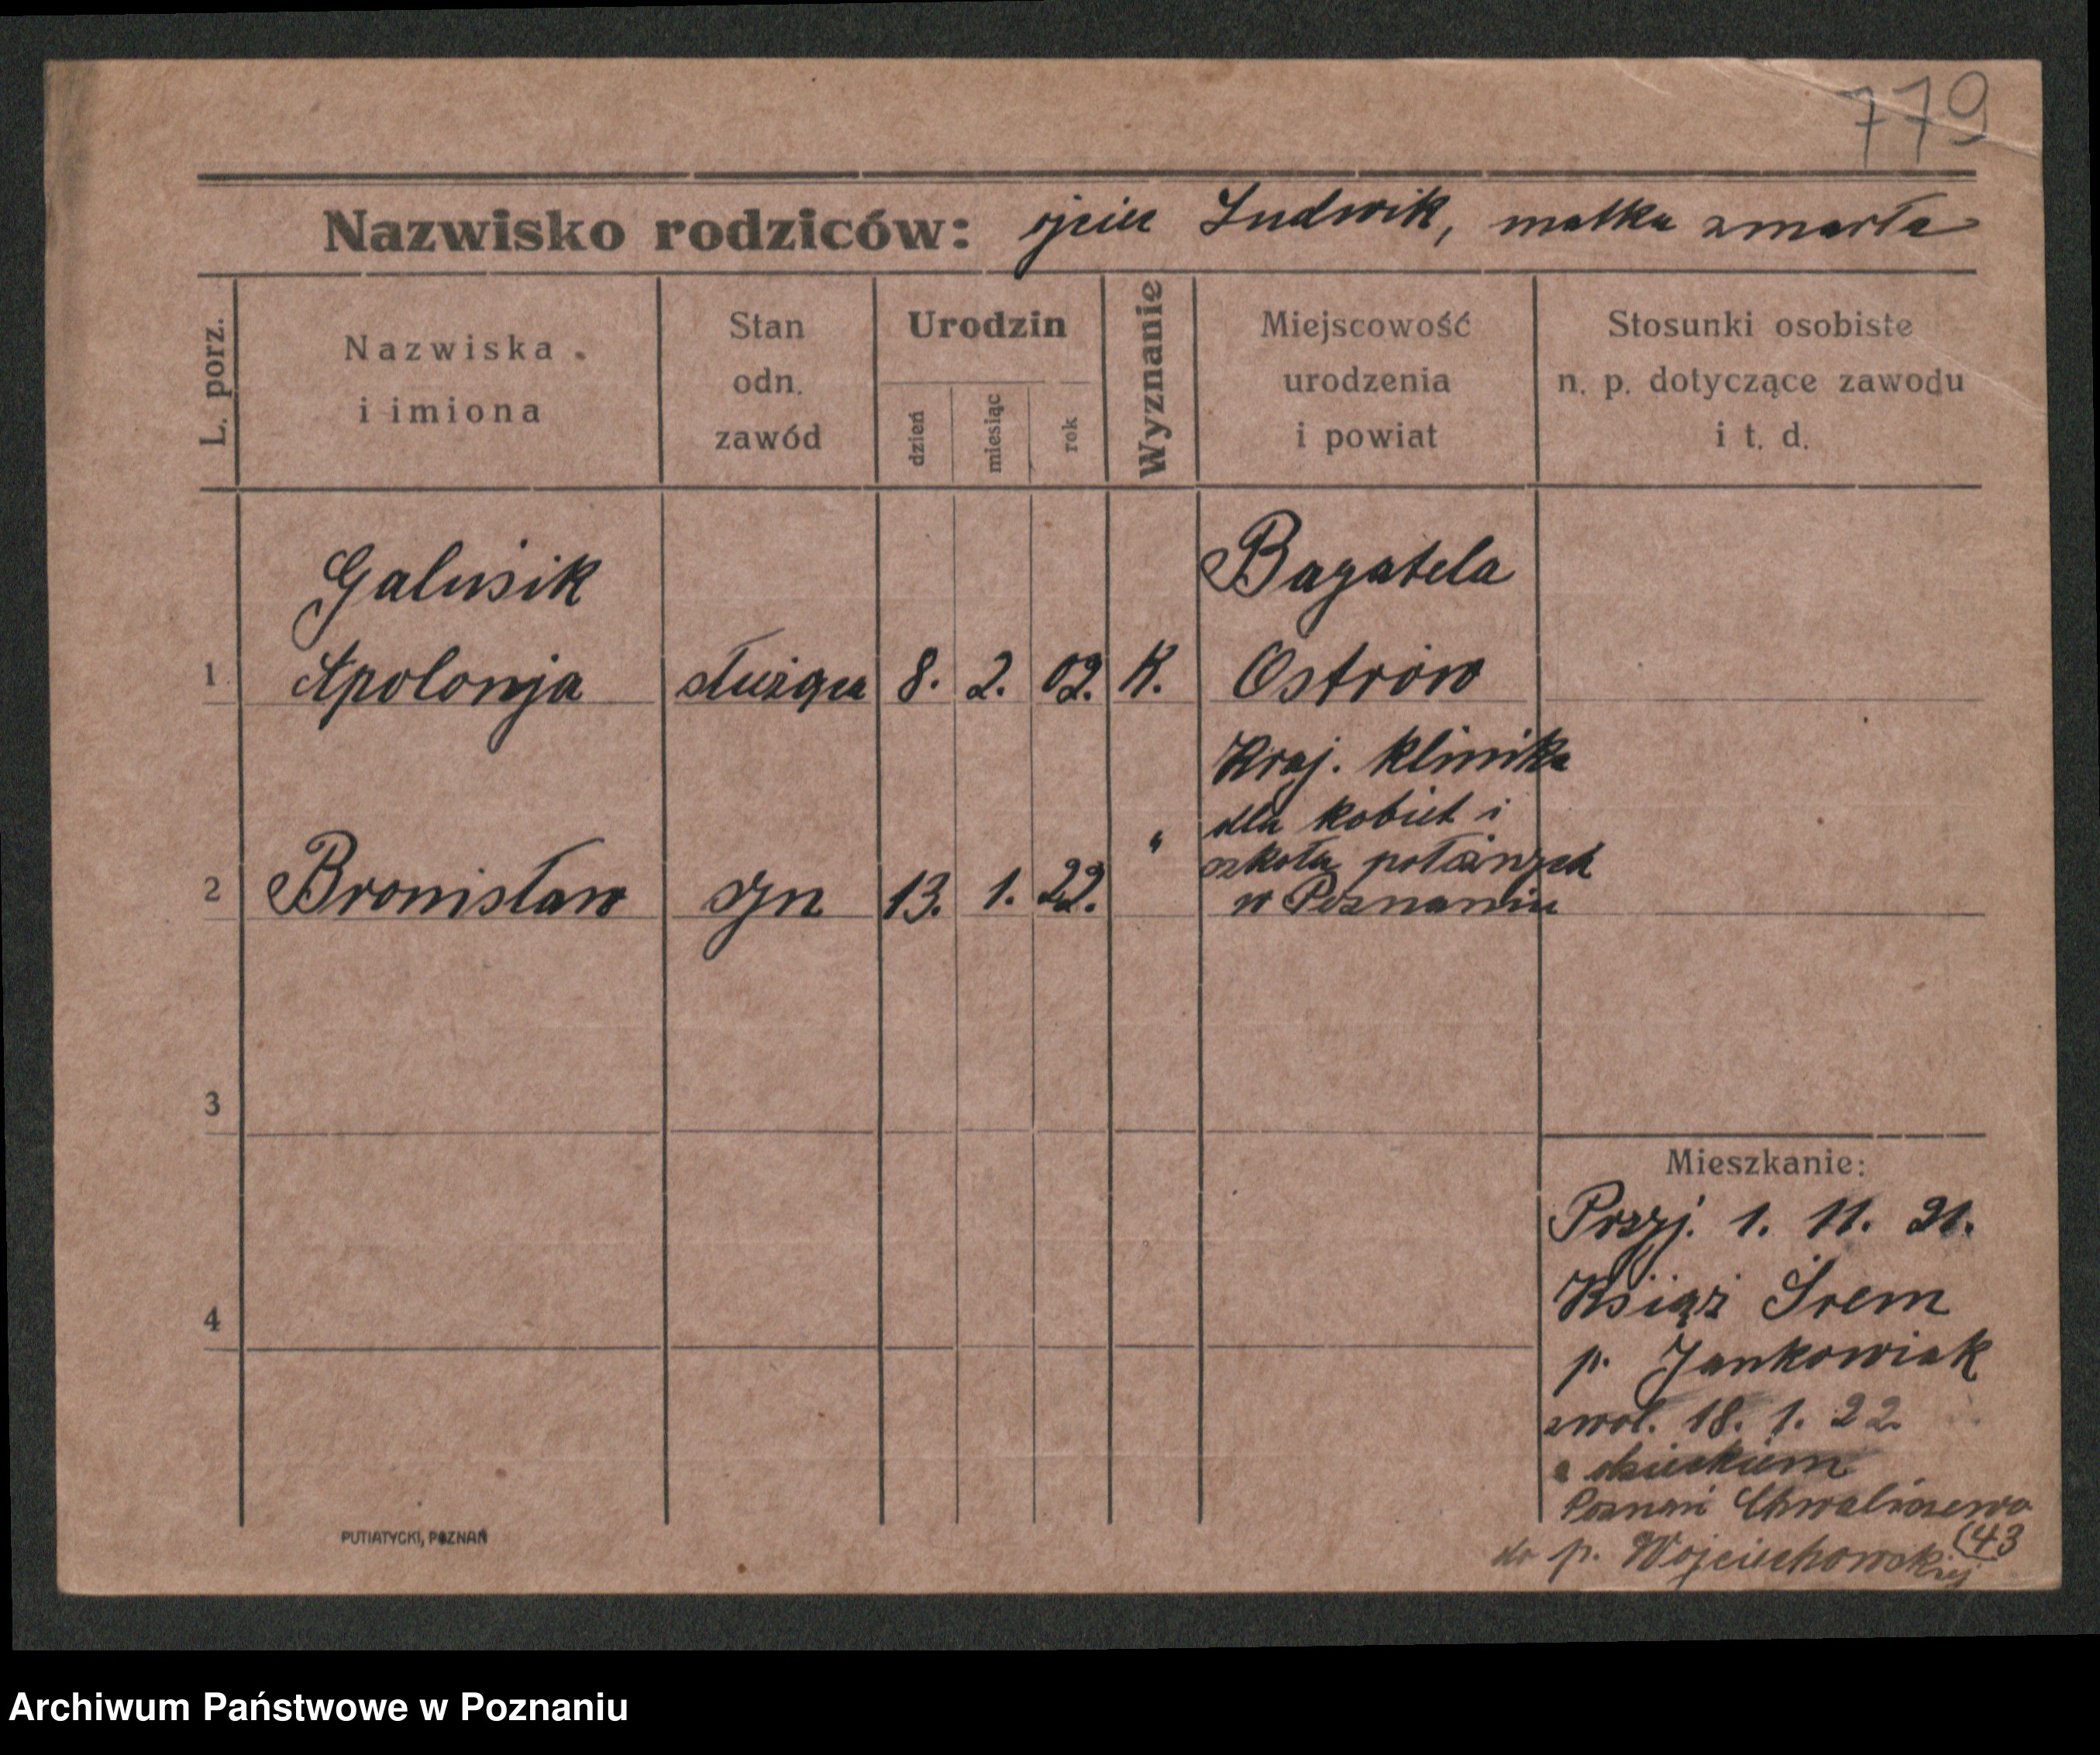 779
Nazwisko rodziców: ojciec Ludwik, matka zmarła
L. porz.
Nazwiska
i imiona
Stan
odn.
zawód
Urodzin
dzień
miesiąc
rok
Wyznanie
Miejscowość
urodzenia
i powiat
Stosunki osobiste
n. p. dotyczące zawodu
i t. d.
Galusik
Bagatela
1 Apolonja służąca 8. 2. 02. K. Ostrów
Kraj. klinika
dla kobiet i
szkoła położnych
2 Bronisław syn 13. 1. 22. " w Poznaniu
3
4
Mieszkanie:
Przyj. 1. 11. 21.
Książ Śrem
p. Jankowiak
zwol. 18. 1. 22
z dzieckiem
Poznań Chwaliszewo
43
do p. Wojciechowskiej
PUTIATYCKI, POZNAŃ
Archiwum Państwowe w Poznaniu